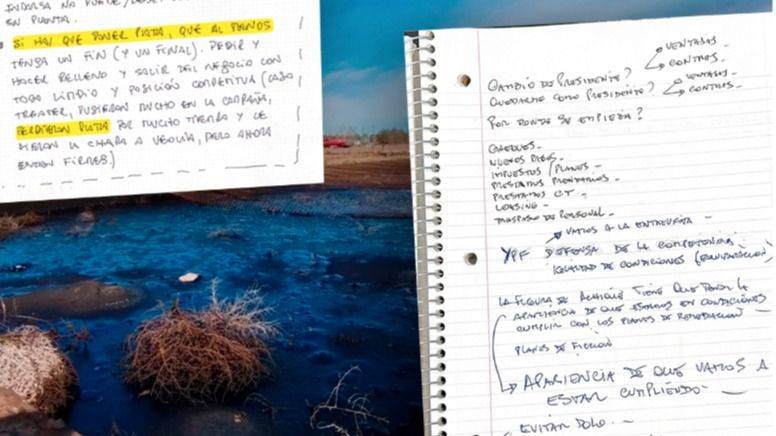 EN PLANTA.
SI HAY QUE PONER PLATA, QUE AL MENOS
TENGA UN FIN (Y UN FINAL). PEDIR Y
HACER RELLENO Y SALIR DEL NEGOCIO CON
TODO LINDO Y POSICIÓN COMPETITIVA (CASO
TREATER, PUSIERON MUCHO EN LA CAMPAÑA,
PERDIERON PLATA POR MUCHO TIEMPO Y LE
DIERON LA CHAPA A VEOLIA, PERO AHORA
ESTÁN FIRMES)
VENTAJAS
CAMBIO DE PRESIDENTE? CONTRAS.
VENTAJAS
QUEDARME COMO PRESIDENTE? CONTRAS.
POR DONDE SE EMPIEZA?
CHEQUES
IMPUESTOS / PLANES
PRESTAMOS PRENDARIOS
PRESTAMOS CT.
LEASING
TRASPASO DE PERSONAL
VAMOS A LA ENTREVISTA
YPF DEFENSA DE LA COMPETENCIA
IGUALDAD DE CONDICIONES
LA FIGURA DE TIENE QUE TENER LA
APARIENCIA DE QUE ESTAMOS EN CONDICIONES
CUMPLIR CON LOS PLANES DE REMEDIACION
PLANES DE FICCION
APARIENCIA DE QUE VAMOS A
ESTAR CUMPLIENDO
EVITAR DOLO.